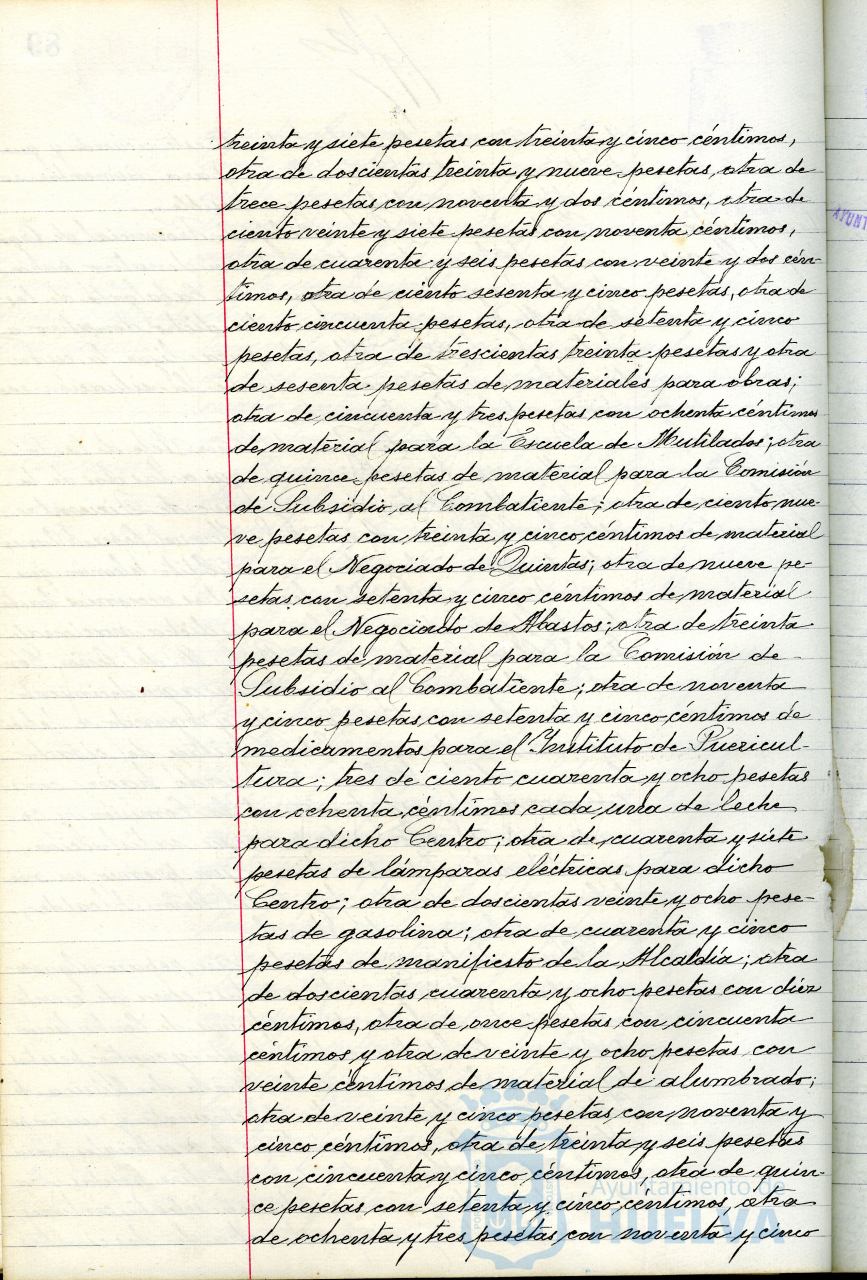 treinta y siete pesetas con treinta y cinco céntimos,
otra de doscientas treinta y nueve pesetas, otra de
trece pesetas con noventa y dos céntimos, otra de
ciento veinte y siete pesetas con noventa céntimos,
otra de cuarenta y seis pesetas con veinte y dos cén-
timos, otra de ciento sesenta y cinco pesetas, otra de
ciento cincuenta pesetas, otra de setenta y cinco
pesetas, otra de trescientas treinta pesetas y otra
de sesenta pesetas de materiales para obras;
otra de cincuenta y tres pesetas con ochenta céntimos
de material para la Escuela de Mutilados; otra
de quince pesetas de material para la Comisión
de Subsidio al Combatiente; otra de ciento nue-
ve pesetas con treinta y cinco céntimos de material
para el Negociado de Quintas; otra de nueve pe-
setas con setenta y cinco céntimos de material
para el Negociado de Abastos; otra de treinta
pesetas de material para la Comisión de
Subsidio al Combatiente; otra de noventa
y cinco pesetas con setenta y cinco céntimos de
medicamentos para el Instituto de Puericul-
tura; tres de ciento cuarenta y ocho pesetas
con ochenta céntimos cada una de leche
para dicho Centro; otra de cuarenta y siete
pesetas de lámparas eléctricas para dicho
Centro; otra de doscientas veinte y ocho pese-
tas de gasolina; otra de cuarenta y cinco
pesetas de manifiesto de la Alcaldía; otra
de doscientas cuarenta y ocho pesetas con diéz
céntimos, otra de once pesetas con cincuenta
céntimos y otra de veinte y ocho pesetas con
veinte céntimos de material de alumbrado;
otra de veinte y cinco pesetas con noventa y
cinco céntimos, otra de treinta y seis pesetas
con cincuenta y cinco céntimos, otra de quin-
ce pesetas con setenta y cinco céntimos, otra
de ochenta y tres pesetas con noventa y cinco
Ayuntamiento de
HUELVA